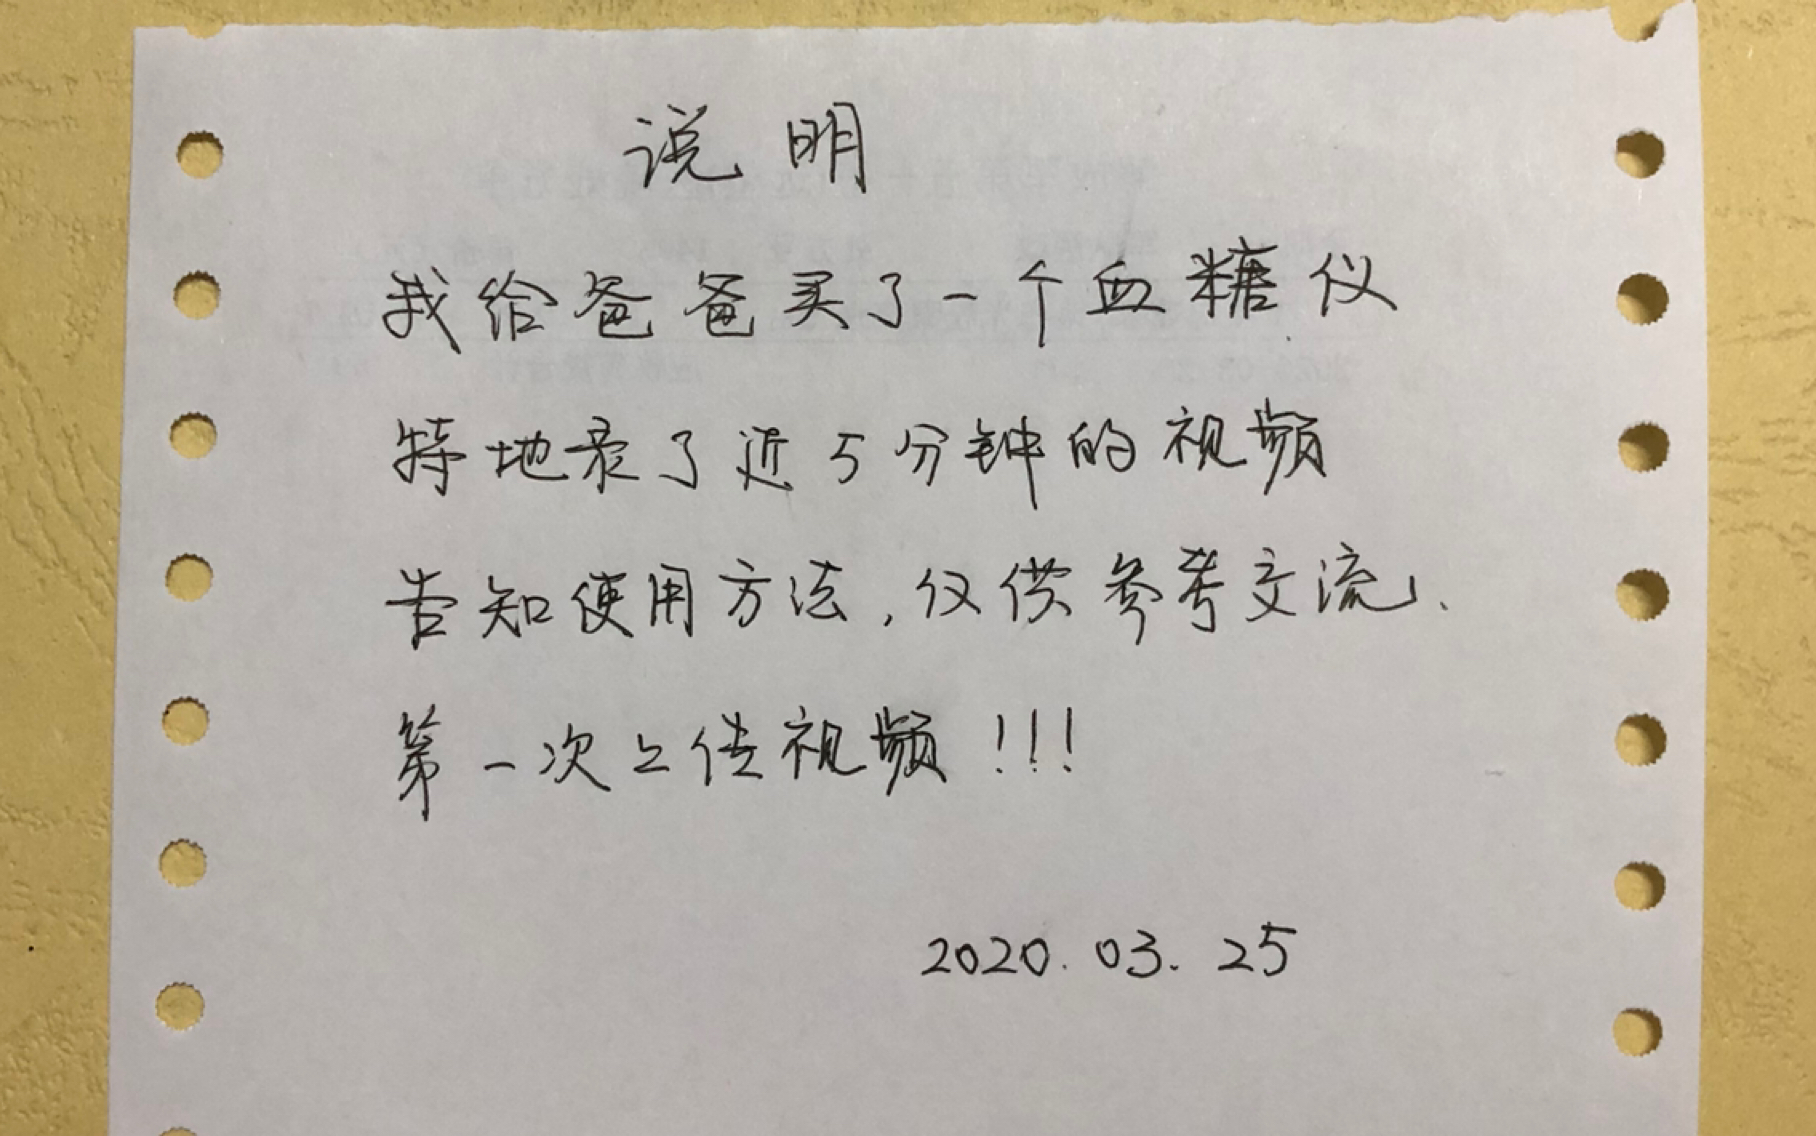 说明
我给爸爸买了一个血糖仪
特地录了近5分钟的视频
告知使用方法,仅供参考交流.
第一次上传视频!!!
2020.03.25